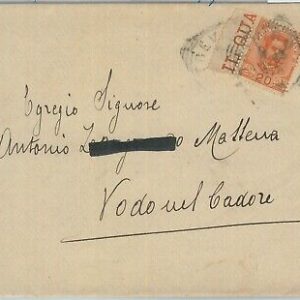 TEQUA
20
Egregio Signore
Antonio Mattena
Vodo nel Cadore